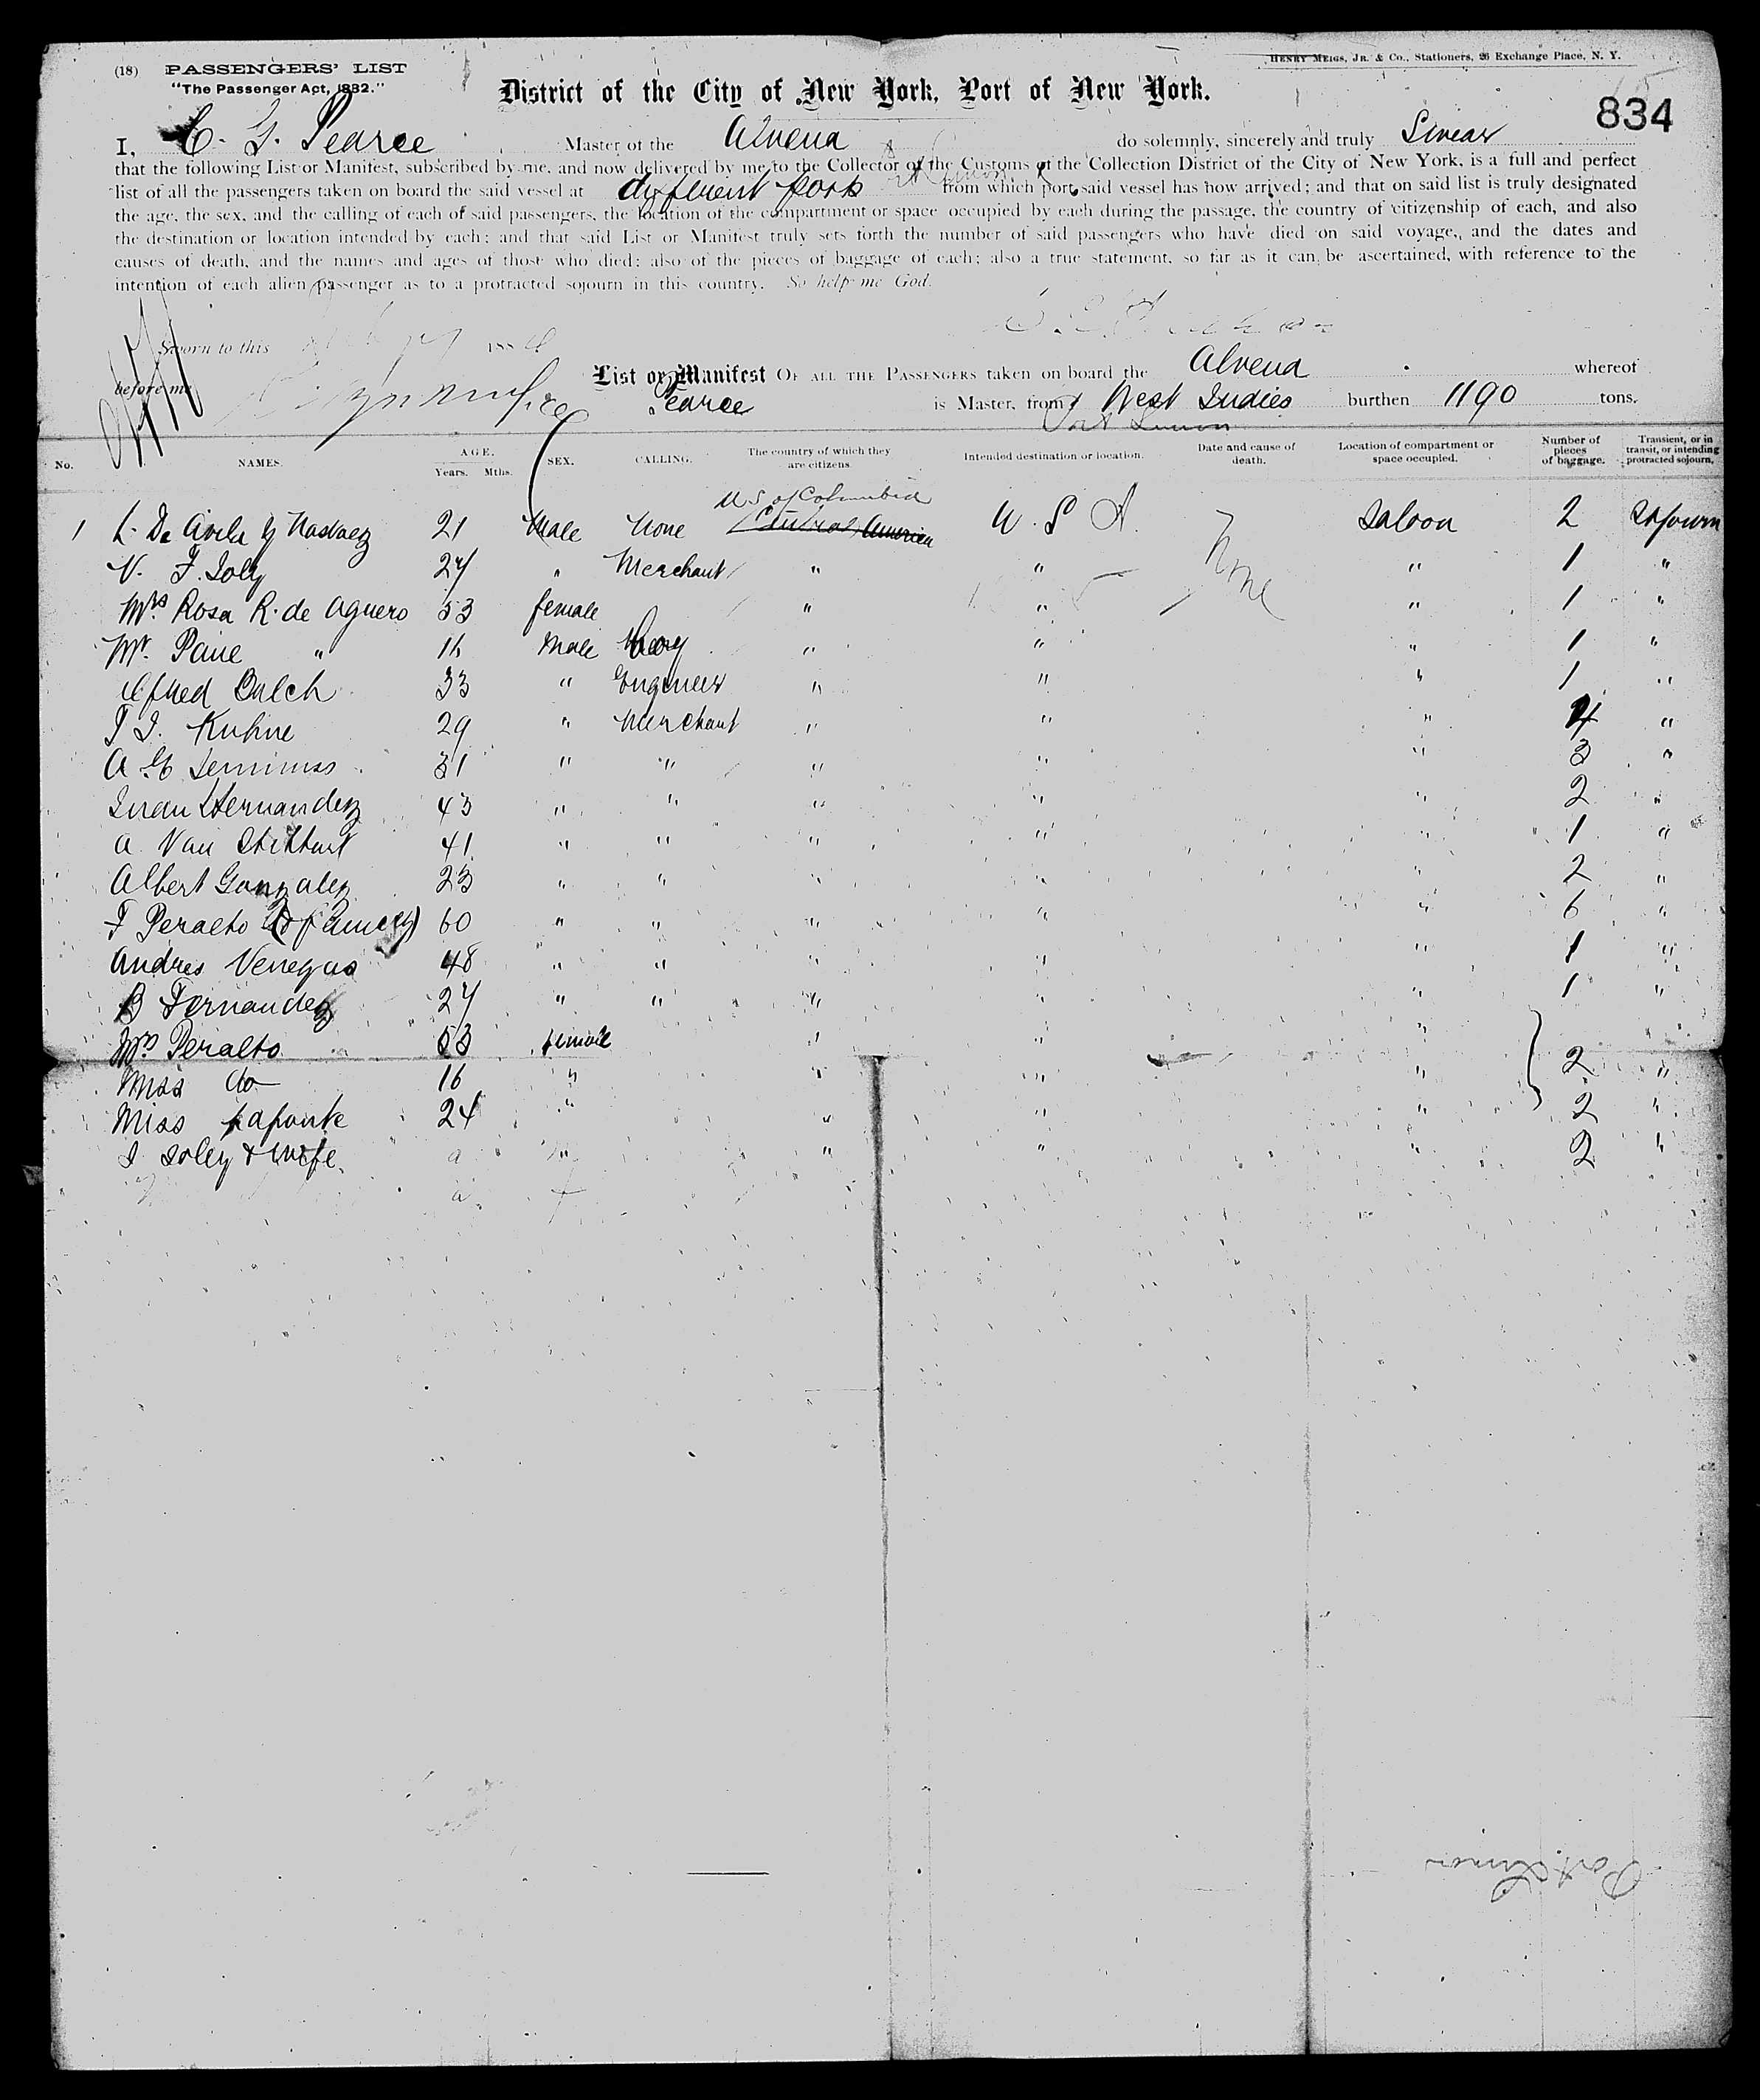 (18) PASSENGERS' LIST
HENRY MEIGS, JR. & Co., Stationers, 26 Exchange Place, N. Y.
"The Passenger Act, 1882."
District of the City of New York, Port of New York.
834
I, C. G. Pearce Master of the Alvena do solemnly, sincerely and truly Swear
that the following List or Manifest, subscribed by me, and now delivered by me to the Collector of the Customs of the Collection District of the City of New York, is a full and perfect
list of all the passengers taken on board the said vessel at different ports from which port said vessel has now arrived; and that on said list is truly designated
the age, the sex, and the calling of each of said passengers, the location of the compartment or space occupied by each during the passage, the country of citizenship of each, and also
the destination or location intended by each; and that said List or Manifest truly sets forth the number of said passengers who have died on said voyage, and the dates and
causes of death, and the names and ages of those who died; also of the pieces of baggage of each; also a true statement, so far as it can be ascertained, with reference to the
intention of each alien passenger as to a protracted sojourn in this country. So help me God.
Sworn to this 188
before me
List or Manifest OF ALL THE PASSENGERS taken on board the Alvena whereof
Pearce is Master, from West Indies burthen 1190 tons.
Port Limon
No. NAMES. AGE. Years. Mths. SEX. CALLING. The country of which they are citizens. Intended destination or location. Date and cause of death. Location of compartment or space occupied. Number of pieces of baggage. Transient, or in transit, or intending protracted sojourn.
U.S. of Columbia
1 L. De Avila y 21 Male None Central America U.S.A. None Saloon 2 Sojourn
V. F. Joly 27 " Merchant " " " 1 "
Mrs Rosa R. de Aguero 53 female " " " 1 "
Mr. " 16 Male Boy " " " 1 "
Alfred Balch 33 " Engineer " " " 1 "
Kuhne 29 " Merchant " " " 4 "
A 31 " " " " " 3 "
Juan Hernandez 43 " " " " " 2 "
A. Van 41 " " " " " 1 "
Albert Gonzalez 23 " " " " " 2 "
F Peralto (& family) 60 " " " " " 6 "
Andres Venegas 48 " " " " " 1 "
B Fernandez 27 " " " " " 1 "
Mrs Peralto 53 female " " "
Miss do 16 " " " " 2 "
Miss Laponte 24 " " " " 2 "
J Joley & wife " " " 2 "
Port Limon